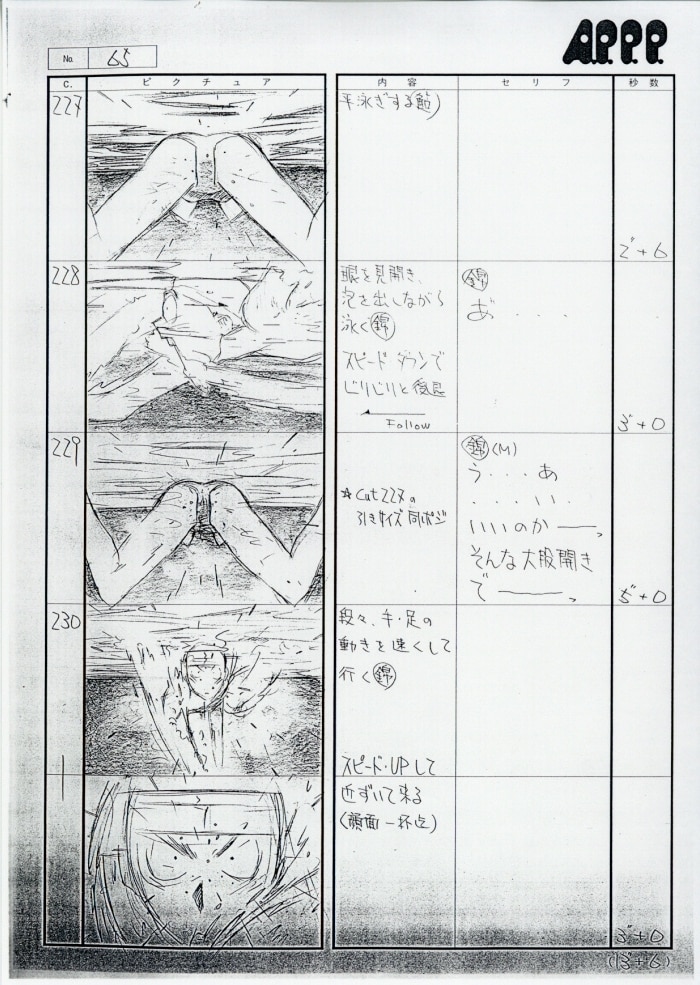 A.P.P.P.
No. 65
C. ピクチュア 内容 セリフ 秒数
227
平泳ぎする
2"+6
228
眼を見開き、
泡を出しながら
泳ぐ錦
スピードダウンで
じりじりと後退
Follow
錦
あ゛・・・・
3"+0
229
☆Cut227の
引きサイズ 同ポジ
錦(M)
う・・・あ
・・・・い・
いいのかーっ
そんな大股開き
でーっ
5"+0
230
段々、手・足の
動きを速くして
行く錦
スピード・UPして
近ずいて来る
(顔面一杯迄)
3"+0
(13"+6)